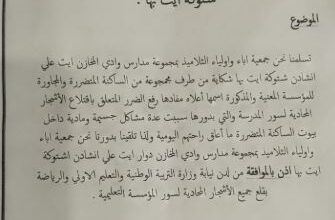 شتوكة ايت بها .
الموضوع
تسلمنا نحن جمعية اباء واولياء التلاميذ بمجموعة مدارس وادي المخازن ايت علي
انشادن شتوكة ايت بها شكاية من طرف مجموعة من الساكنة المتضررة والمجاورة
للمؤسسة المعنية والمذكورة اسمها أعلاه مفادها رفع الضرر المتعلق باقتلاع الأشجار
المحادية لسور المدرسة والتي بدورها سببت عدة مشاكل جسمية ومادية داخل
بيوت الساكنة المتضررة ما أعاق راحتهم اليومية ولذا تلقينا بدورنا نحن جمعية اباء
واولياء التلاميذ بمجموعة مدارس وادي المخازن دوار ايت علي انشادن اشتوكة
ايت بها اذن بالموافقة من لدن نيابة وزارة التربية الوطنية والتعليم الاولي والرياضة
بقلع جميع الأشجار المحادية لسور المؤسسة التعليمية .